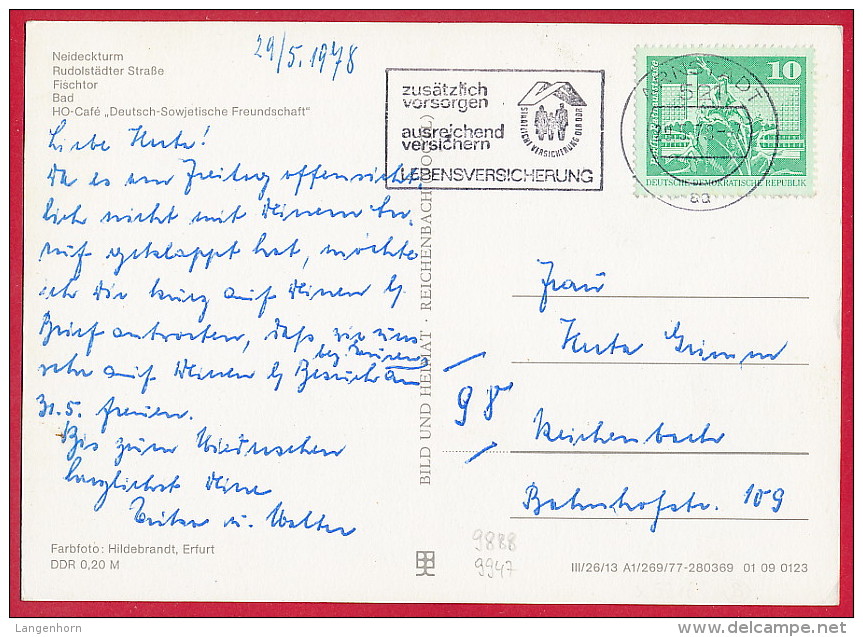 29/5.1978
Neideckturm
Rudolstädter Straße
Fischtor
Bad
HO-Café „Deutsch-Sowjetische Freundschaft"
zusätzlich
vorsorgen
ausreichend
versichern
LEBENSVERSICHERUNG
STAATLICHE VERSICHERUNG DER DDR
ARNSTADT
521
aa
10
DEUTSCHE DEMOKRATISCHE REPUBLIK
Liebe Herta!
Da es am Freitag offensicht-
lich nicht mit Deinem An-
ruf geklappt hat, möchte
ich Dir kurz auf Deinen lb
Brief antworten, daß wir uns
sehr auf Deinen lb Besuch am
31.5. freuen.
Bis zum Wiedersehen
herzlichst Deine
u. Walter
BILD UND HEIMAT · REICHENBACH (VOGTL)
Frau
Herta Grimm
98
Reichenbach
Bahnhofstr. 109
9888
9947
Farbfoto: Hildebrandt, Erfurt
DDR 0,20 M
III/26/13 A1/269/77-280369 01 09 0123
Langenhorn
delcampe.net